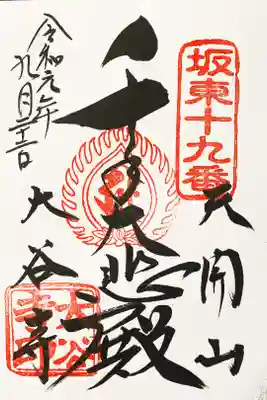 坂東十九番
天開山
千手大悲殿
大谷寺
令和元年
九月